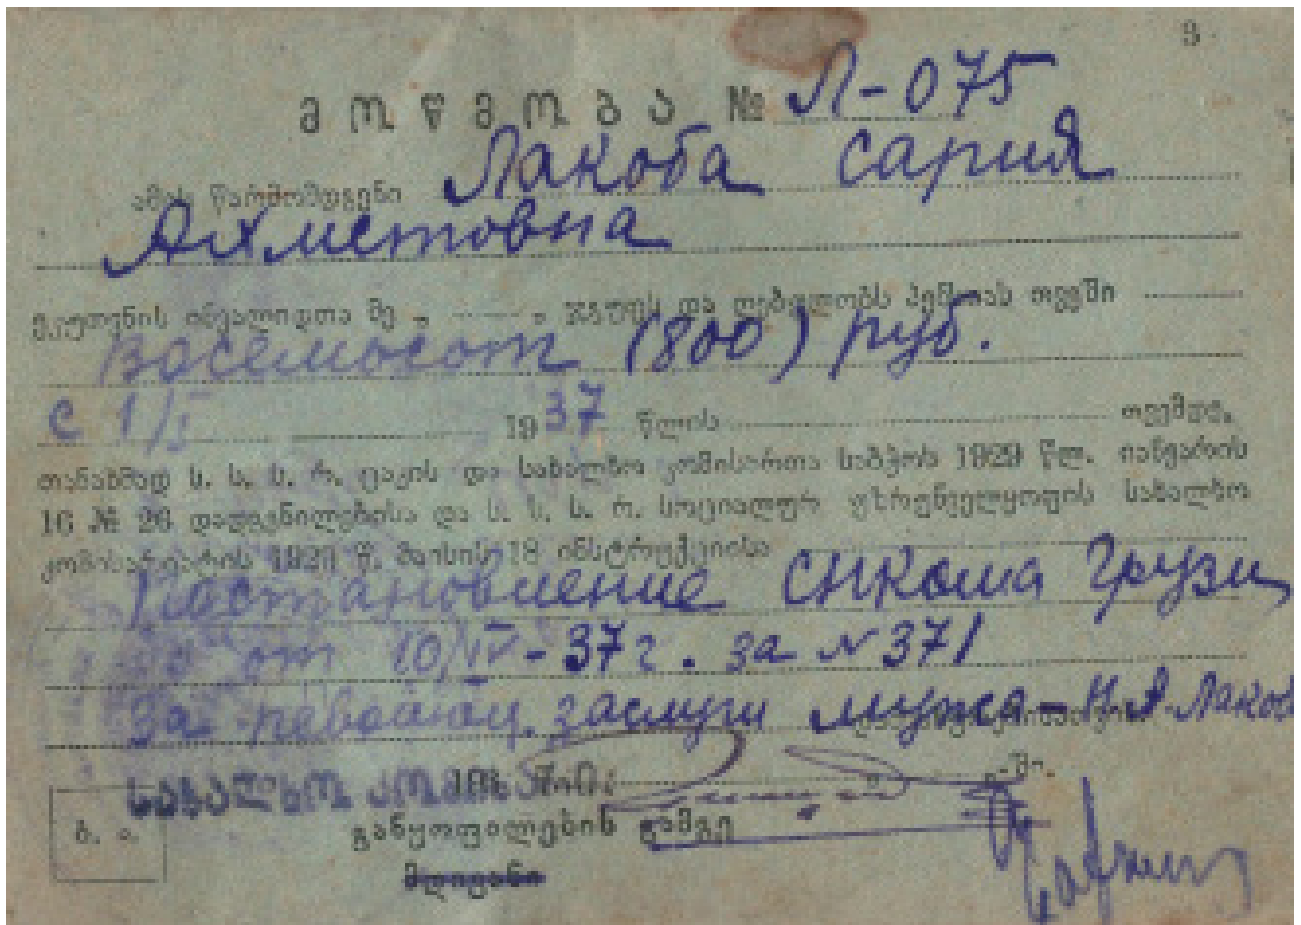 3
მოწმობა № Л-075
ამის წარმომდგენი Лакоба Сария
Ахметовна
ეკუთვნის ინვალიდთა მე „ “ ჯგუფს და ღებულობს პენსიას თვეში
восемьсот (800) руб.
с 1/I 1937 წლის თვემდე,
თანახმად ს. ს. ს. რ. ცაკის და სახალხო კომისართა საბჭოს 1929 წლ. იანვარის
16 № 26 დადგენილებისა და ს. ს. ს. რ. სოციალურ უზრუნველყოფის სახალხო
კომისარიატის 1929 წ. მაისის 18 ინსტრუქციისა
Постановление СНКома Грузии
от 10/IV-37г. за №371
За революц. заслуги мужа - Н.А. Лакоб
სახალხო კომისარი
განყოფილების გამგე
ბ. ა.
მდივანი